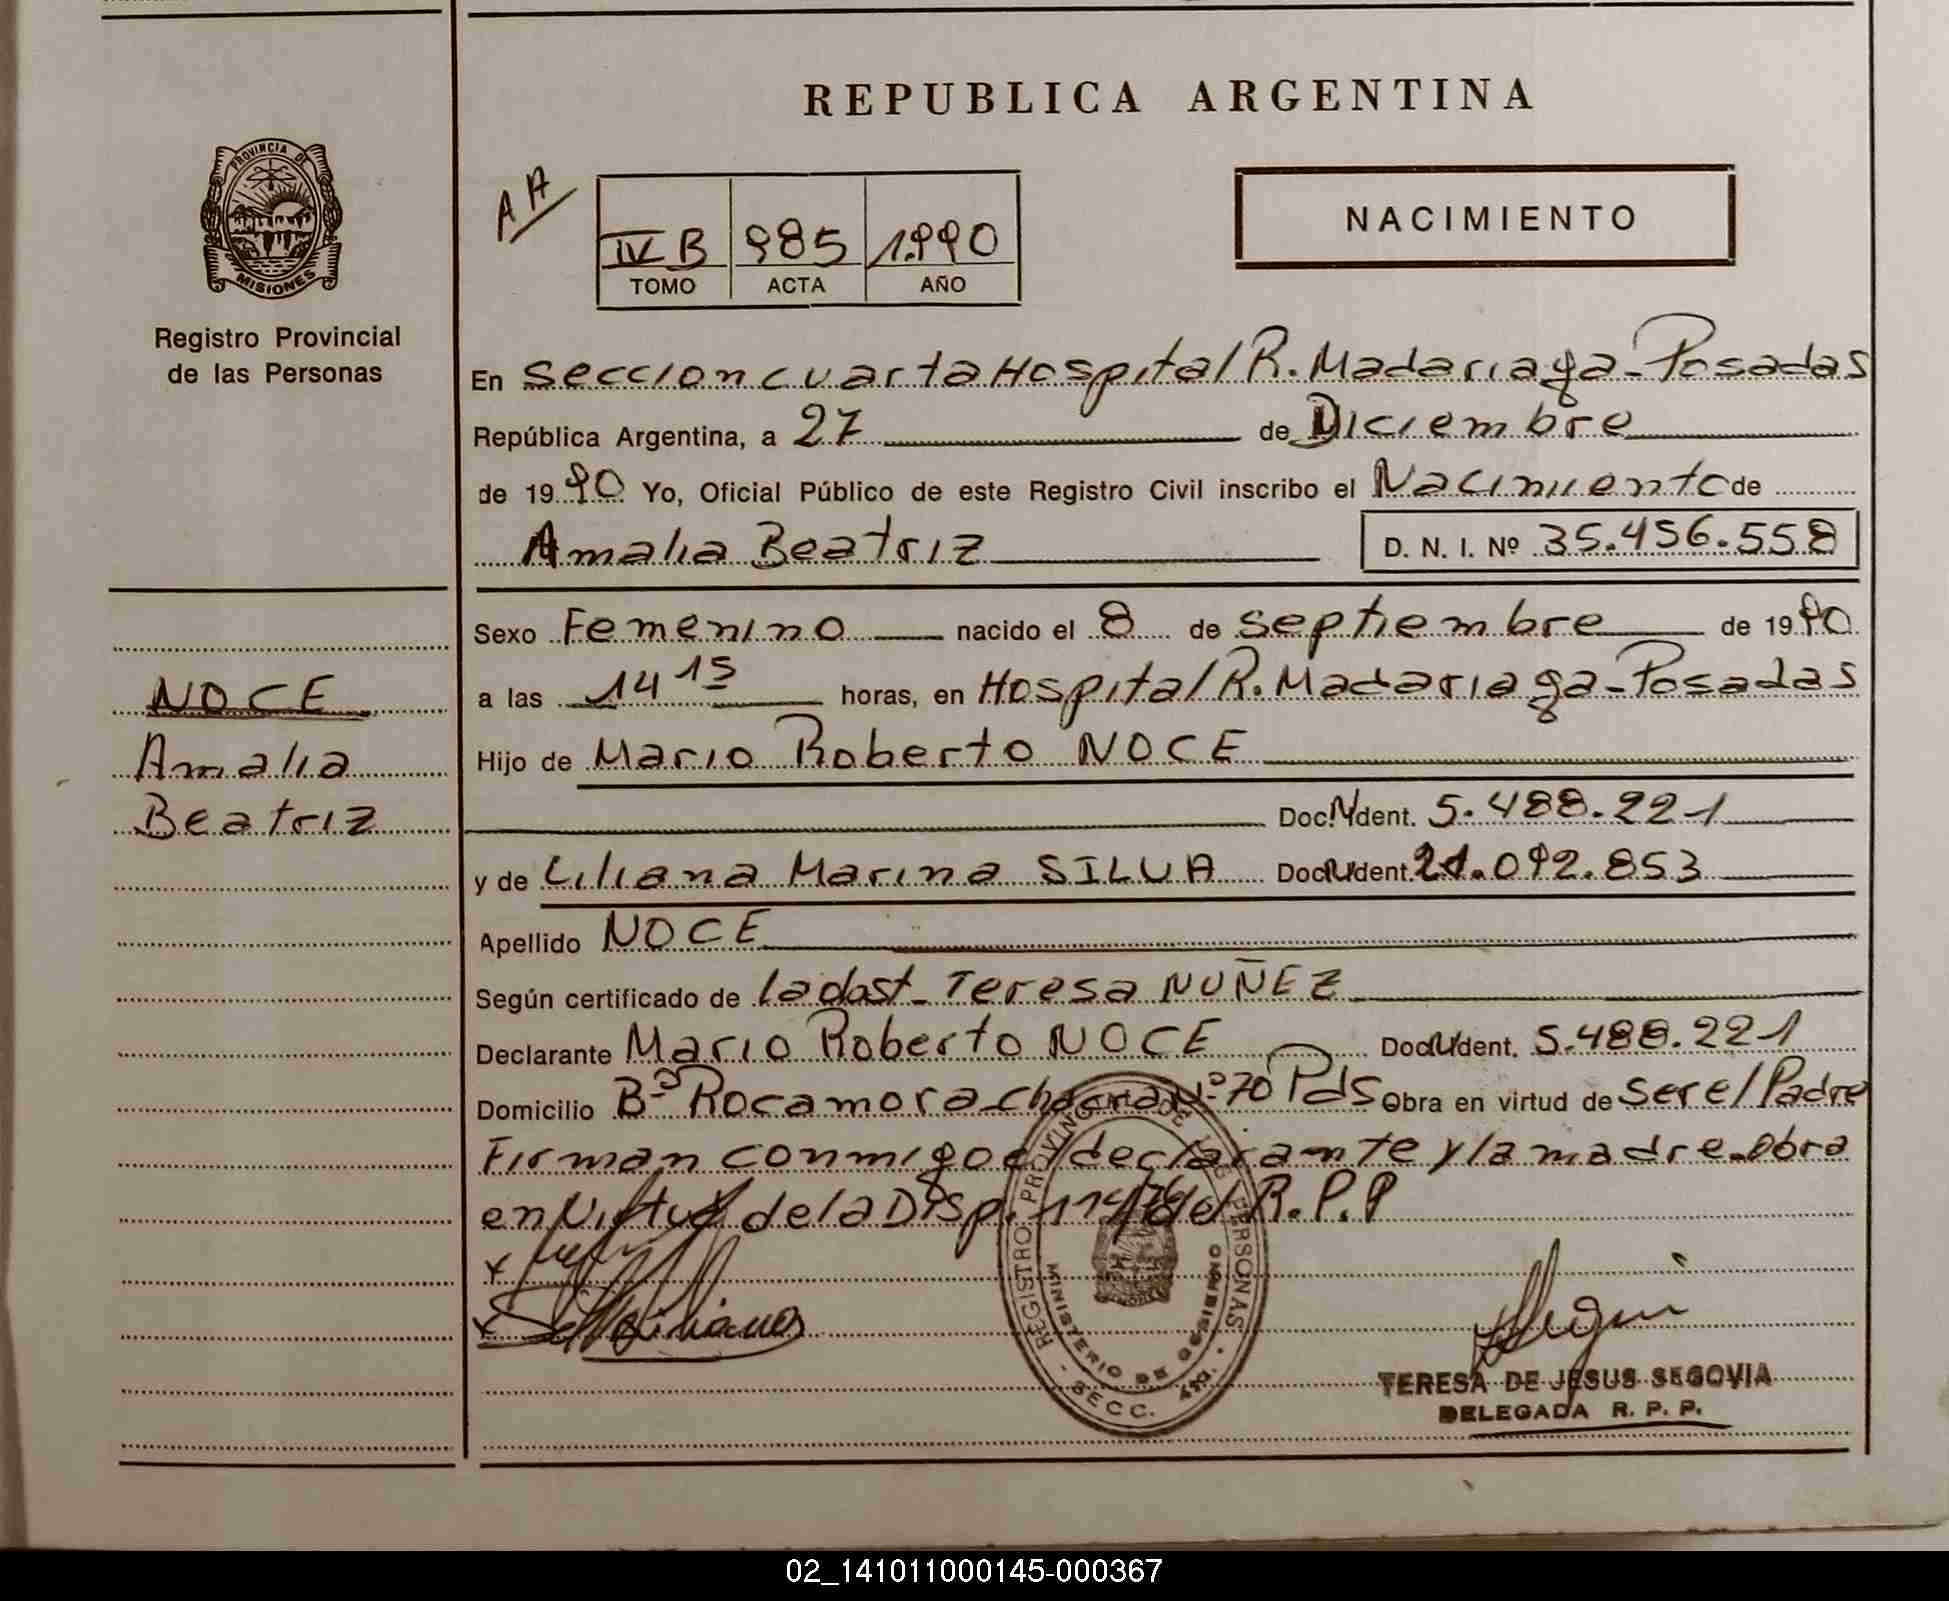 REPUBLICA ARGENTINA
PROVINCIA DE
MISIONES
Registro Provincial
de las Personas
AA
IV B 985 1.990
TOMO ACTA AÑO
NACIMIENTO
En Seccion cuarta Hospital R. Madariaga - Posadas
República Argentina, a 27 de Diciembre
de 1990 Yo, Oficial Público de este Registro Civil inscribo el Nacimiento de
Amalia Beatriz D. N. I. Nº 35.456.558
Sexo Femenino nacido el 8 de Septiembre de 1990
a las 14 15 horas, en Hospital R. Madariaga - Posadas
Hijo de Mario Roberto NOCE
Doc. Ident. 5.488.221
y de Liliana Marina SILVA Doc. Ident. 21.092.853
Apellido NOCE
Según certificado de la obst. Teresa NUÑEZ
Declarante Mario Roberto NOCE Doc. Ident. 5.488.221
Domicilio Bº Rocamora chacra Nº 70 Pds Obra en virtud de Ser el Padre
Firman conmigo el declarante y la madre. Obra
en Virtud de la Disp. 114/76 del R.P.P
NOCE
Amalia
Beatriz
REGISTRO PROVINCIAL DE LAS PERSONAS
MINISTERIO DE GOBIERNO
SECC. 4ta.
TERESA DE JESUS SEGOVIA
DELEGADA R. P. P.
02_141011000145-000367